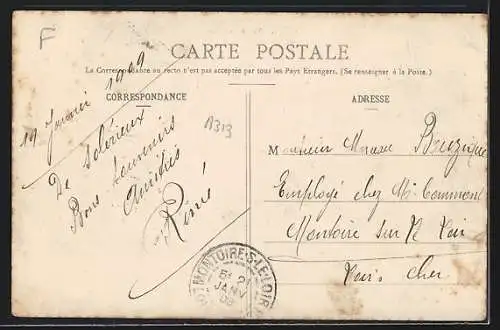 F
CARTE POSTALE
La Correspondance au recto n'est pas acceptée par tous les Pays Etrangers. (Se renseigner à la Poste.)
CORRESPONDANCE
19 Janvier 1909
De
Bons souvenirs
Amitiés
René
A313
ADRESSE
Monsieur
Employé chez Mr
Montoire sur le Loir
Cher
MONTOIRE-S-LE-LOIR
21
JANV
09